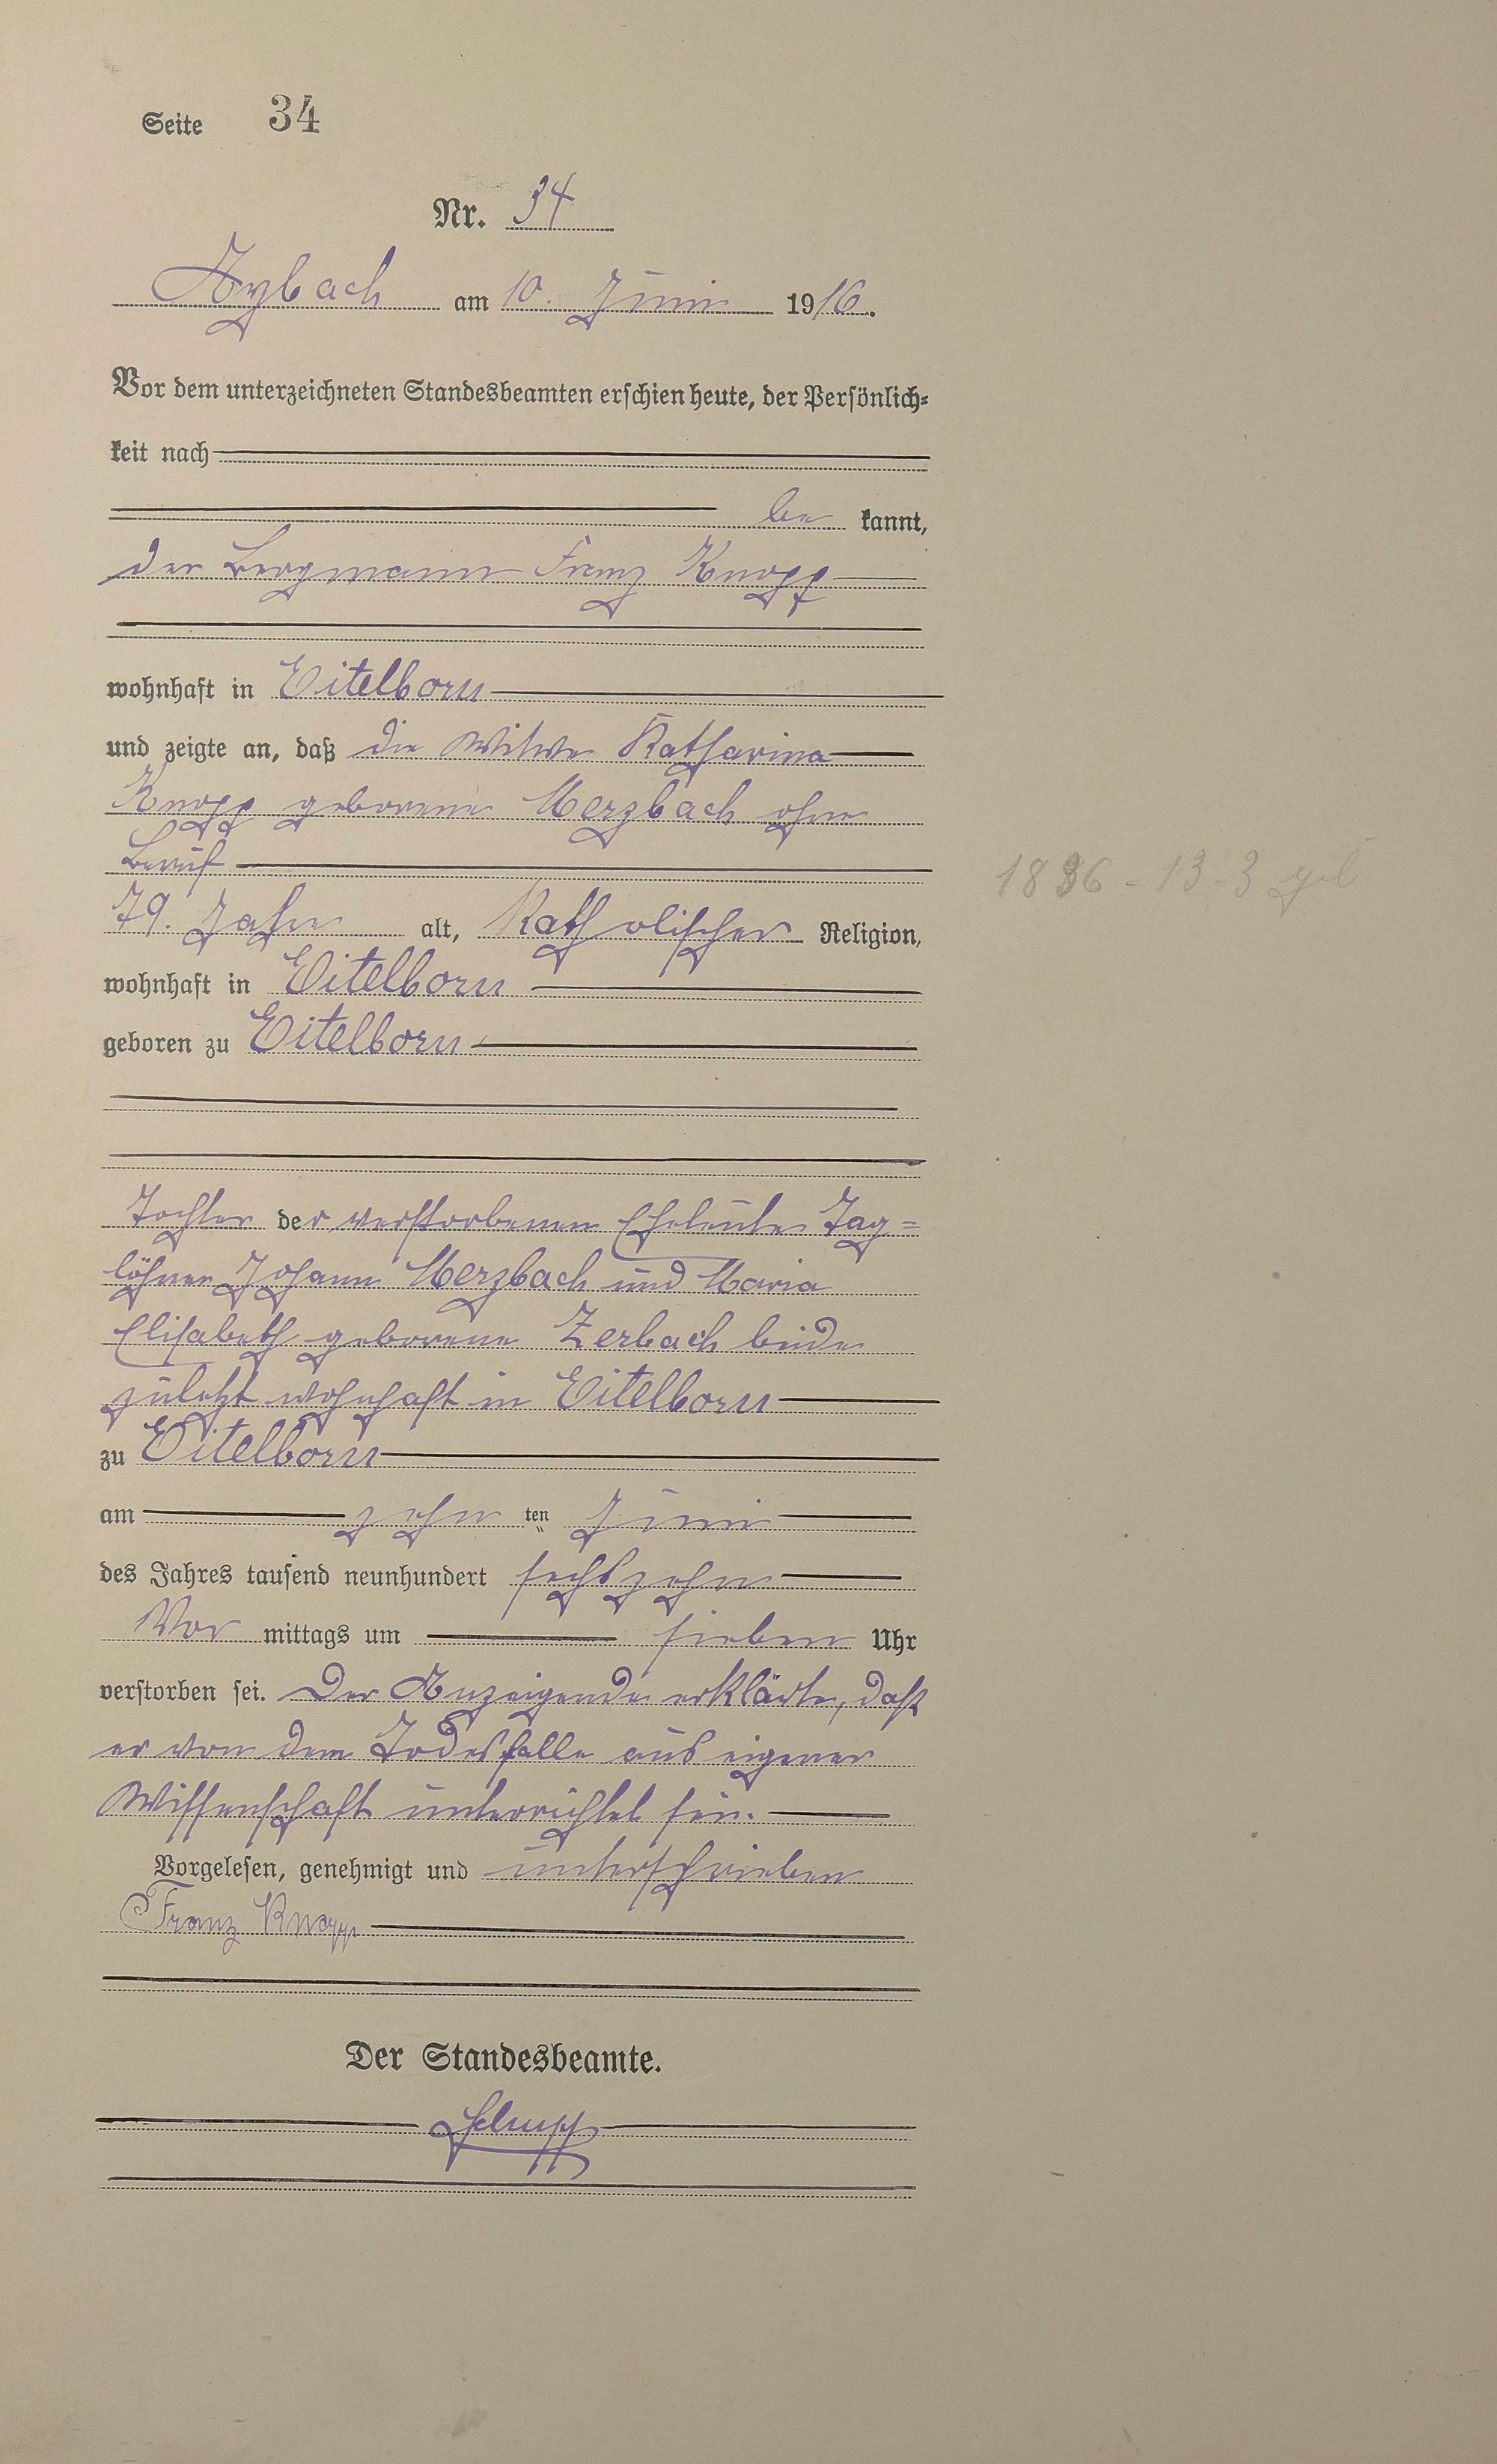 Seite 34
Nr. 34
Arzbach am 10. Juni 1916.
Vor dem unterzeichneten Standesbeamten erschien heute, der Persönlich-
keit nach
be kannt,
der Bergmann Franz Knopp
wohnhaft in Eitelborn
und zeigte an, daß die Witwe Katharina
Knopp geborene Merzbach ohne
Beruf
1836 - 13-3 geb
79. Jahre alt, Katholischer Religion,
wohnhaft in Eitelborn
geboren zu Eitelborn
Tochter der verstorbenen Eheleute Tag=
löhner Johann Merzbach und Maria
Elisabeth geborene Zerbach beide
zuletzt wohnhaft in Eitelborn
zu Eitelborn
am zehn ten Juni
des Jahres tausend neunhundert sechszehn
Vor mittags um sieben Uhr
verstorben sei. Der Anzeigende erklärte, daß
er von dem Todesfalle aus eigener
Wissenschaft unterrichtet sei.
Vorgelesen, genehmigt und unterschrieben
Franz Knopp
Der Standesbeamte.